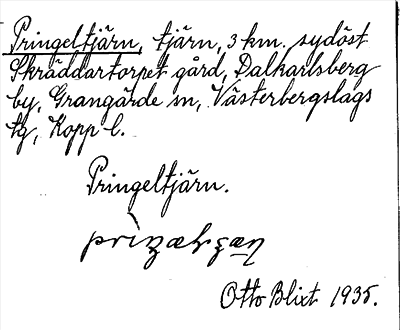 Pringeltjärn, tjärn, 3 km. sydöst
Skräddartorpet gård, Dalkarlsberg
by, Grangärde sn, Västerbergslags
tg, Kopp l.
Pringeltjärn.
Otto Blixt 1935.